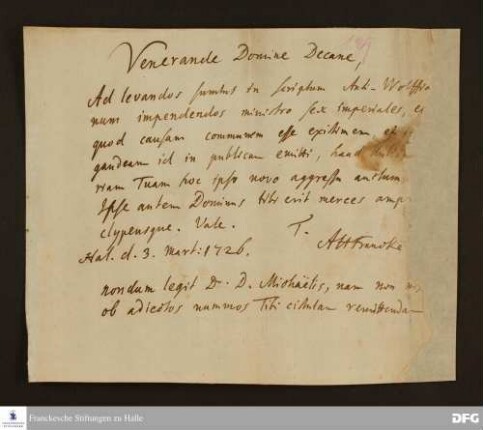 Venerande Domine Decane,
Ad levandos sumtus in scriptum Anti-Wolffia
num impendendos ministro sex imperiales, e
quod causam communem esse existimem, et
gaudeam id in publicum emitti, haud
riam Tuam hoc ipso novo aggressu auctum
Ipse autem Dominus tibi erit merces amp
clypeusque. Vale. T.
Hal. d. 3. Mart: 1726. AHFrancke
nondum legit Dr. D. Michaelis, nam non
ob adiectos nummos Tibi citulam remittendam
Franckesche Stiftungen zu Halle
DFG